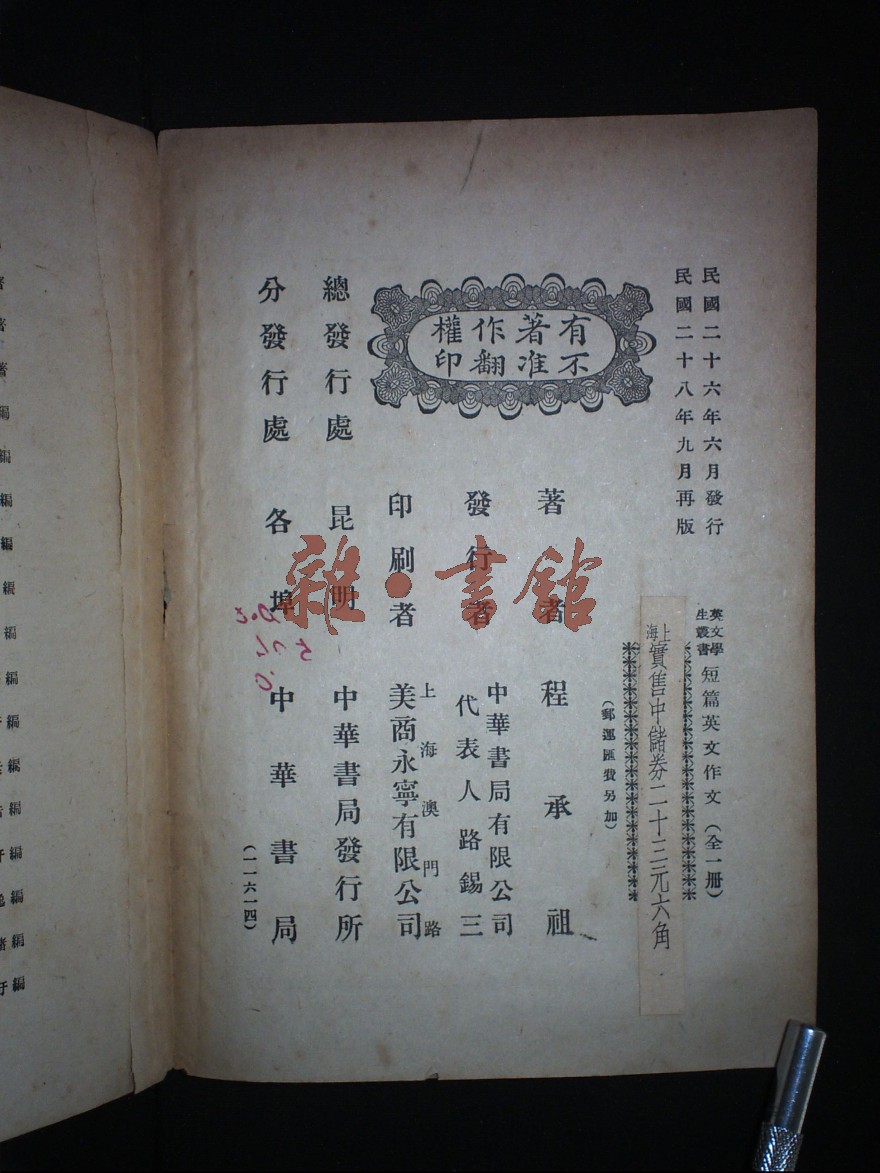 民國二十六年六月發行
民國二十八年九月再版
英文學
生叢書
短篇英文作文(全一册)
上海
實售中儲券二十三元六角
(郵運匯費另加)
有著作權
不准翻印
著者 程承祖
發行者 中華書局有限公司
代表人路錫三
印刷者 上海澳門路
美商永寧有限公司
總發行處 昆明 中華書局發行所
分發行處 各埠 中華書局
(一一六一四)
雜·書館
著
著
著
編
編
編
編
編
編
編
編
編
編
編
編
編
編